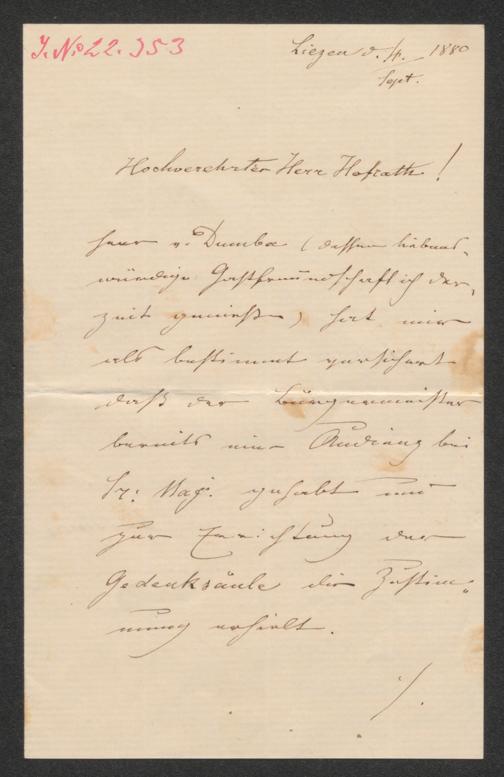 J. No 22.353
Liezen d. 4. 1880
Sept.
Hochverehrter Herr Hofrath!
Herr v. Dumba (dessen liebens-
würdige Gastfreundschaft ich der-
zeit genieße) hat mir
als bestimmt versichert
daß der Bürgermeister
bereits eine Audienz bei
Sr: Maj. gehabt und
zur Errichtung der
Gedenksäule die Zustim-
mung erhielt.
./.